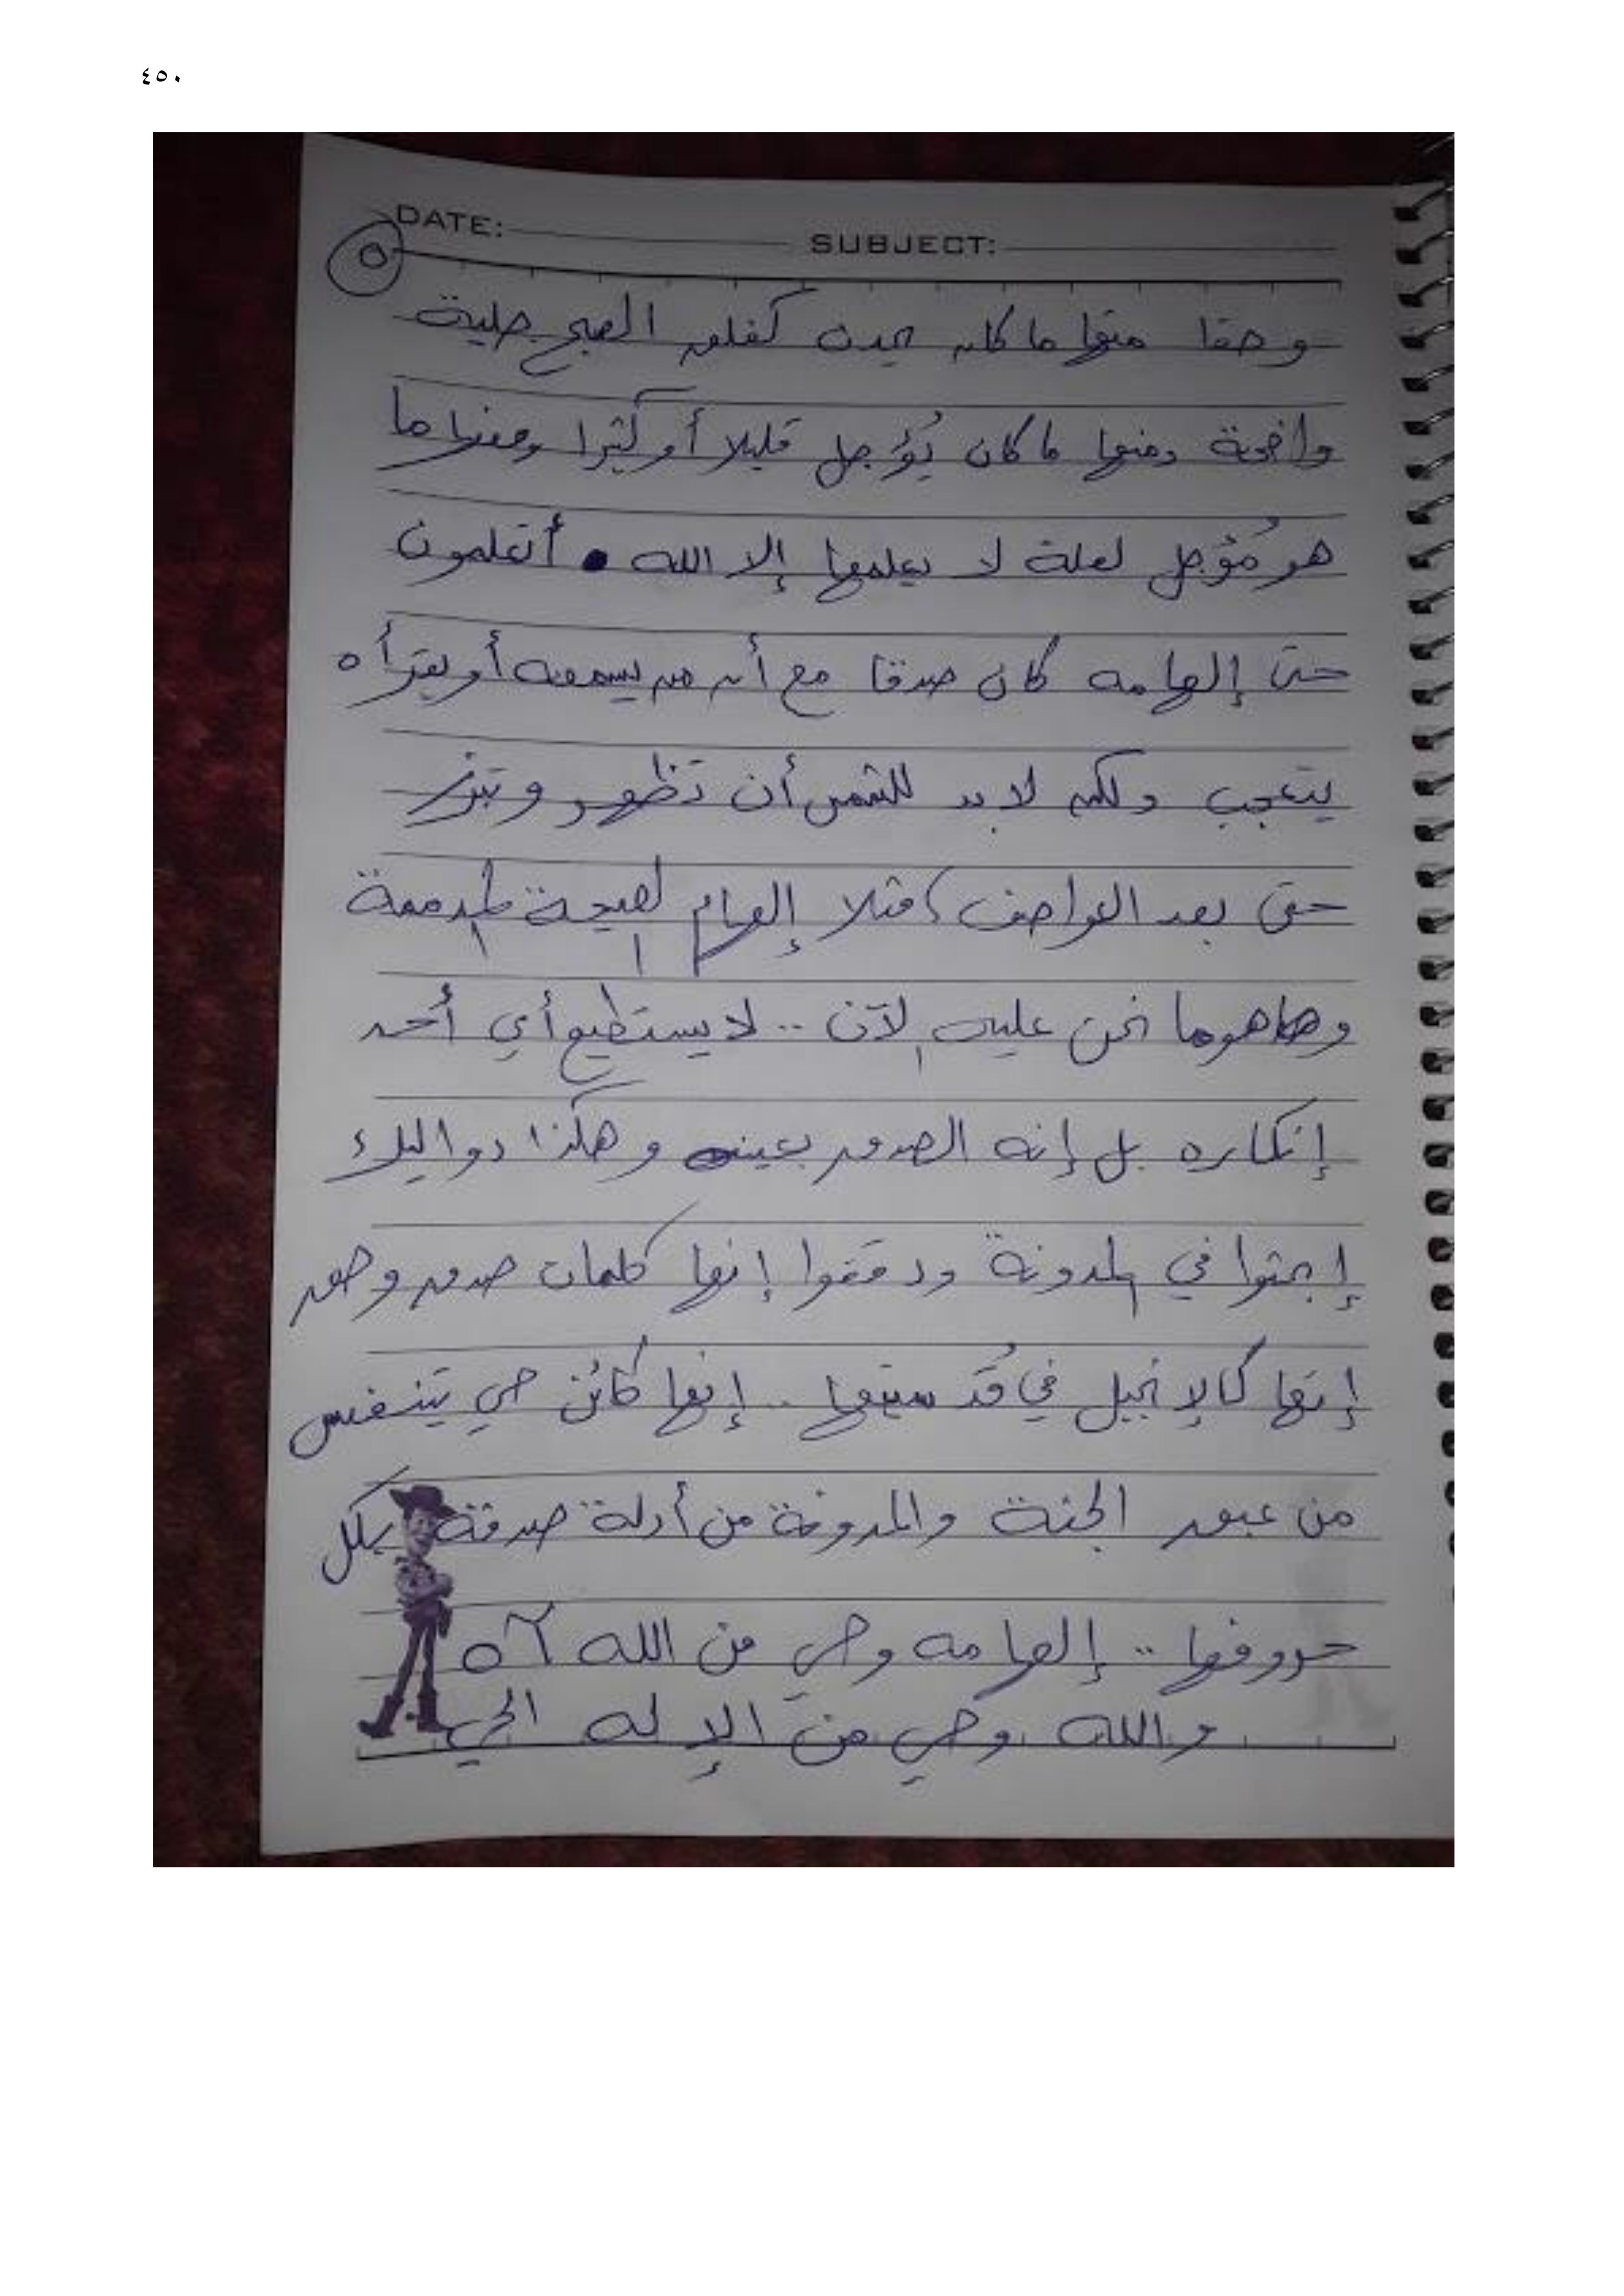 ٤٥٠
DATE: SUBJECT:
٥
وحقا منها ما كان يحدث كفلق الصبح جلية
واضحة ومنها ما كان يُؤجل قليلا أو كثيرا ومنها ما
هو مُؤجل لعلة لا يعلمها إلا الله . أتعلمون
حتى إلهامه كان صدقا مع أن من يسمعه أو يقرأه
يتعجب ولكن لا بد للشمس أن تظهر وتبزغ
حتى بعد العواصف، مثلا إلهام الصيحة المدممة
وها هو ما نحن عليه الآن .. لا يستطيع أي أحد
إنكاره بل إنه الصدق بعينه وهكذا دواليك
إبحثوا في المدونة ودققوا إنها كلمات صدق وحق
إنها كالإنجيل في قُدسيتها .. إنها كائن حي يتنفس
من عبق الجنة والمدونة من أدلة صدقة بكل
حروفها .. إلهامه وحي من الله
والله وحي من الإله الحي